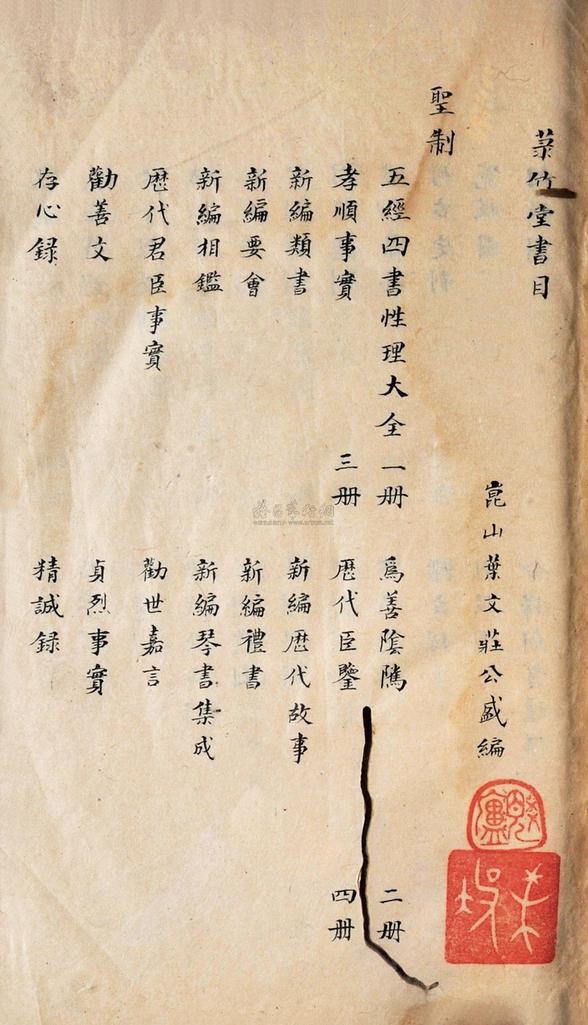 菉竹堂書目
崑山葉文莊公盛編
聖制
五經四書性理大全 一册 爲善陰隲 二册
孝順事實 三册 歷代臣鑒 四册
新編類書 新編歷代故事
新編要會 新編禮書
新編相鑑 新編琴書集成
歷代君臣事實 勸世嘉言
勸善文 貞烈事實
存心録 精誠録